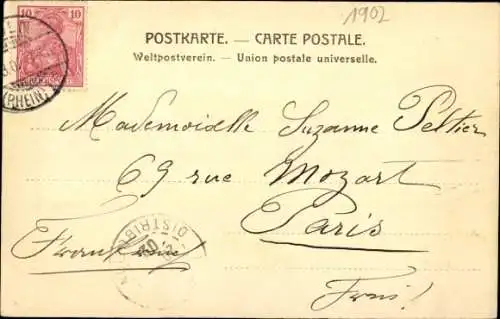 1902
10 10
POSTKARTE. — CARTE POSTALE.
Weltpostverein. — Union postale universelle.
(RHEIN)
Mademoiselle Suzanne Peltier
69 rue Mozart
Paris
DISTRIB